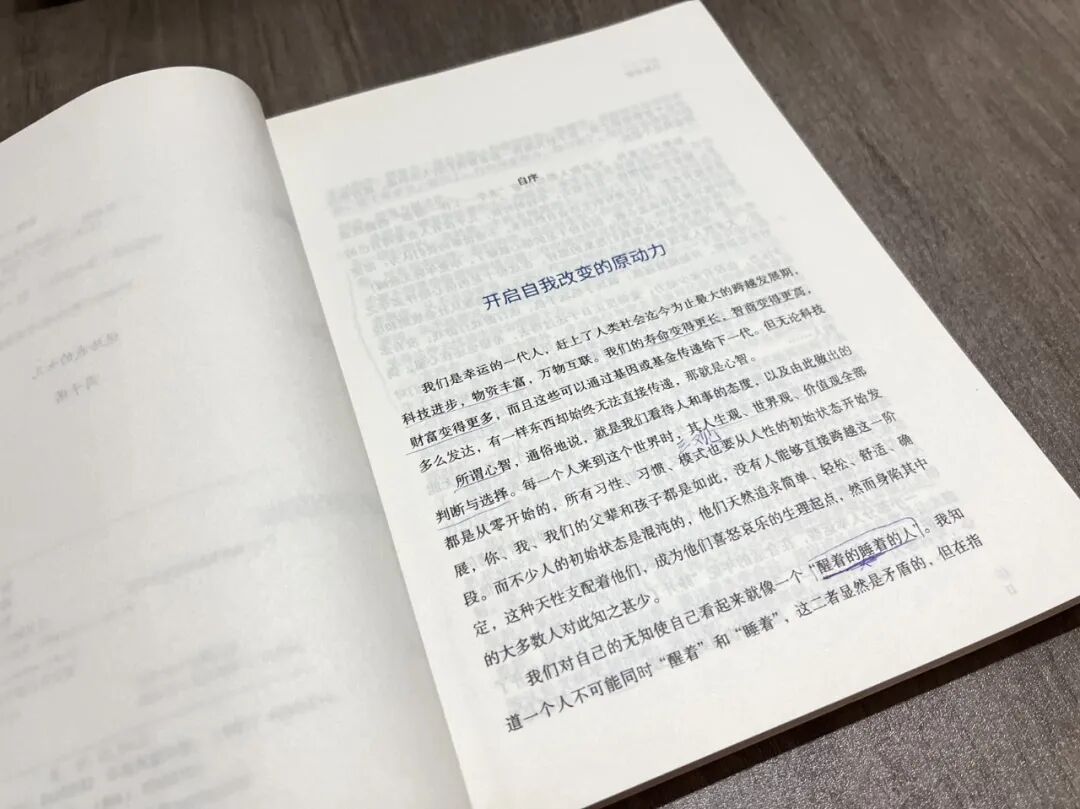 自序
开启自我改变的原动力
我们是幸运的一代人，赶上了人类社会迄今为止最大的跨越发展期，
科技进步，物资丰富，万物互联。我们的寿命变得更长，智商变得更高，
财富变得更多，而且这些可以通过基因或基金传递给下一代。但无论科技
多么发达，有一样东西却始终无法直接传递，那就是心智。
所谓心智，通俗地说，就是我们看待人和事的态度，以及由此做出的
判断与选择。每一个人来到这个世界时，其人生观、世界观、价值观全部
三观
都是从零开始的，所有习性、习惯、模式也要从人性的初始状态开始发
展，你、我、我们的父辈和孩子都是如此，没有人能够直接跨越这一阶
段。而不少人的初始状态是混沌的，他们天然追求简单、轻松、舒适、确
定，这种天性支配着他们，成为他们喜怒哀乐的生理起点，然而身陷其中
的大多数人对此知之甚少。
我们对自己的无知使自己看起来就像一个“醒着的睡着的人”。我知
道一个人不可能同时“醒着”和“睡着”，这二者显然是矛盾的，但在指